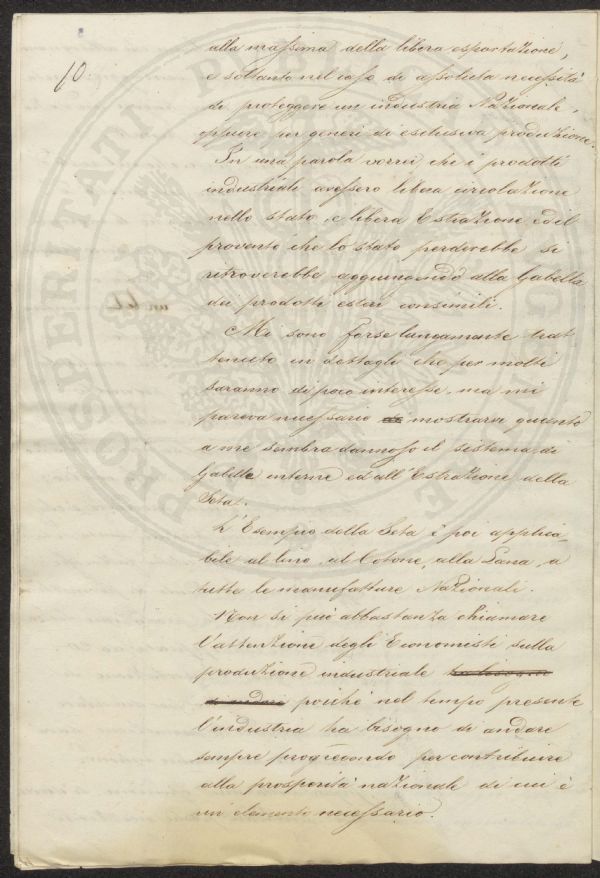 10.
alla massima della libera esportazione,
e soltanto nel caso di assoluta necessità
di proteggere un industria Nazionale,
oppure per generi di esclusiva produzione.
In una parola vorrei che i prodotti
industriali avessero libera circolazione
nello stato, e libera Estrazione ed il
provento che lo stato perderebbe si
ritroverebbe aggiungendo alla Gabella
dei prodotti esteri consimili.
Mi sono forse lungamente trat
tenuto in dettagli che per molti
saranno di poco interesse, ma mi
pareva necessario mostrarvi quanto
a me sembra dannoso il sistema di
Gabelle interne ed all'Estrazione della
Seta.
L'Esempio della Seta è poi applica-
bile al lino, al Cotone, alla Lana, a
tutte le manufatture Nazionali.
Non si può abbastanza chiamare
l'attenzione degli Economisti sulla
produzione industriale
poiché nel tempo presente
l'industria ha bisogno di andare
sempre progredendo per contribuire
alla prosperità nazionale di cui è
un elemento necessario.
PROSPERITATI PUBLICAE